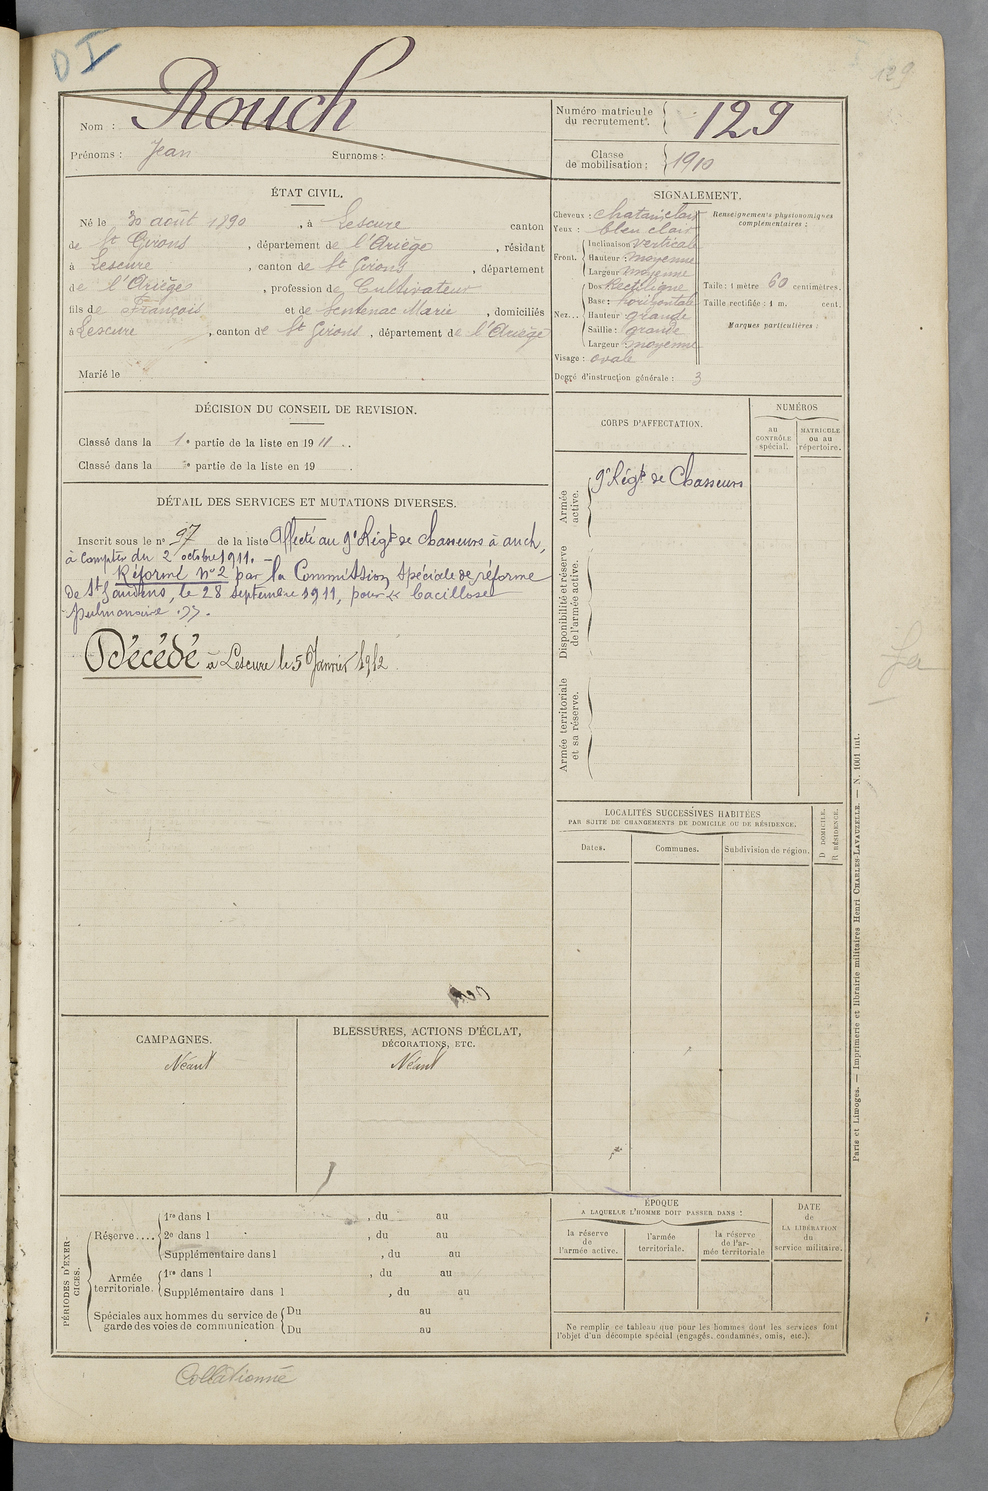 D I
129
Nom : Rouch
Prénoms : Jean Surnoms :
Numéro matricule du recrutement. 129
Classe de mobilisation : 1910
ÉTAT CIVIL.
Né le 30 août 1890, à Lescure canton
de St Girons, département de l'Ariège, résidant
à Lescure, canton de St Girons, département
de l'Ariège, profession de Cultivateur
fils de François et de Sentenac Marie, domiciliés
à Lescure, canton de St Girons, département de l'Ariège
Marié le
SIGNALEMENT.
Cheveux : chatain clair
Yeux : bleu clair
Front. Inclinaison verticale
Hauteur : moyenne
Largeur moyenne
Nez... Dos Rectiligne
Base : horizontale
Hauteur grande
Saillie : grande
Largeur : moyenne
Visage : ovale
Degré d'instruction générale : 3
Renseignements physionomiques complémentaires :
Taille : 1 mètre 60 centimètres.
Taille rectifiée : 1 m. cent.
Marques particulières :
DÉCISION DU CONSEIL DE REVISION.
Classé dans la 1e partie de la liste en 1911.
Classé dans la e partie de la liste en 19 .
DÉTAIL DES SERVICES ET MUTATIONS DIVERSES.
Inscrit sous le no 97 de la liste Affecté au 9e Régt de Chasseurs à Auch,
à compter du 2 octobre 1911. –
Réformé no 2 par la Commission spéciale de réforme
de St Gaudens, le 28 septembre 1911, pour « bacillose
pulmonaire ».
Décédé à Lescure le 5 Janvier 1912.
CORPS D'AFFECTATION.
NUMÉROS
au CONTRÔLE spécial.
MATRICULE ou au répertoire.
Armée active. 9e Régt de Chasseurs
Disponibilité et réserve de l'armée active.
Armée territoriale et sa réserve.
LOCALITÉS SUCCESSIVES HABITÉES
PAR SUITE DE CHANGEMENTS DE DOMICILE OU DE RÉSIDENCE.
Dates. Communes. Subdivision de région. D DOMICILE. R RÉSIDENCE.
CAMPAGNES.
Néant
BLESSURES, ACTIONS D'ÉCLAT,
DÉCORATIONS, ETC.
Néant
PÉRIODES D'EXERCICES.
Réserve.... 1re dans l , du au
2e dans l , du au
Supplémentaire dans l , du au
Armée territoriale. 1re dans l , du au
Supplémentaire dans l , du au
Spéciales aux hommes du service de garde des voies de communication Du au
Du au
ÉPOQUE
A LAQUELLE L'HOMME DOIT PASSER DANS :
la réserve de l'armée active.
l'armée territoriale.
la réserve de l'armée territoriale
DATE de LA LIBÉRATION du service militaire.
Ne remplir ce tableau que pour les hommes dont les services font
l'objet d'un décompte spécial (engagés, condamnés, omis, etc.).
Paris et Limoges. — Imprimerie et librairie militaires Henri CHARLES-LAVAUZELLE. — N. 1001 int.
Collationné